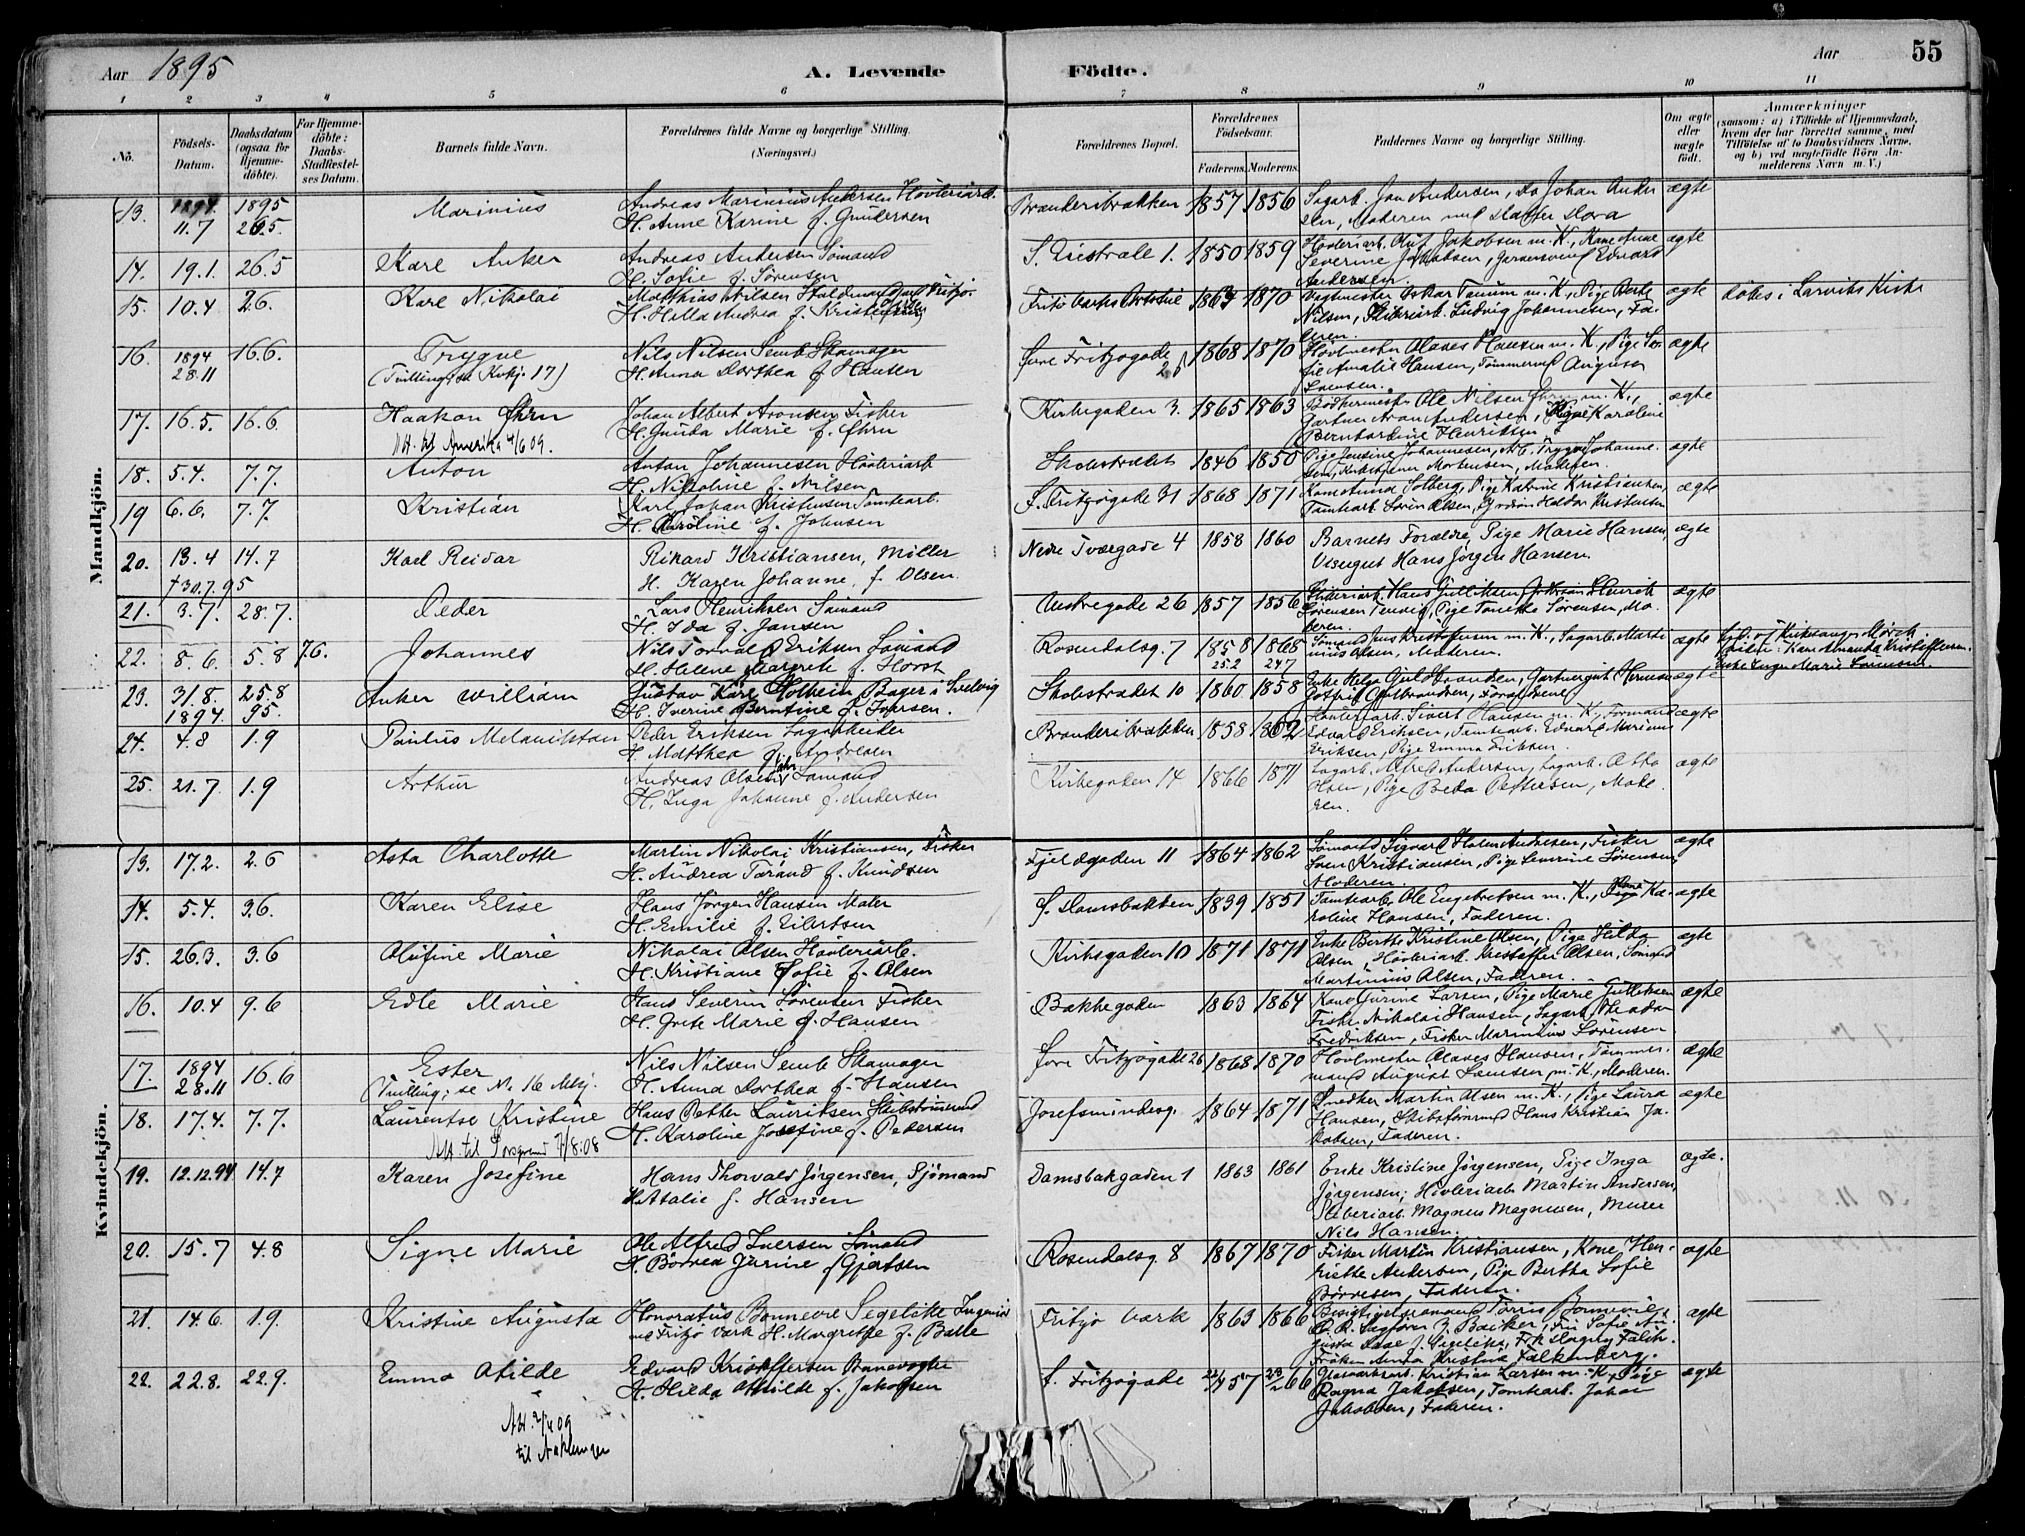 Aar 1895
A. Levende Födte.
Aar
55
1 2 3 4 5 6 7 8 9 10 11
No.
Födsels-Datum.
Daabsdatum (ogsaa for Hjemme-döbte).
For Hjemme-döbte: Daabs-Stadfæstel-ses Datum.
Barnets fulde Navn.
Forældrenes fulde Navne og borgerlige Stilling. (Næringsvei.)
Forældrenes Bopæl.
Forældrenes Födselsaar.
Faderens. Moderens.
Faddernes Navne og borgerlige Stilling.
Om ægte eller uægte födt.
Anmærkninger (saasom: a) i Tilfælde af Hjemmedaab, hvem der har forrettet samme, med Tilföielse af to Daabsvidners Navne, og b) ved uægtefödte Börn An-melderens Navn m. V.)
Mandkjön.
13. 1894 11.7 1895 26.5. Marinius
Andreas Marinius Andersen Høvleriarb.
H. Anne Karine f. Gundersen
1857 1856 Sagarb. Jan Andersen, Do Johan Ander
sen, Moderen med Datter Dora
ægte
14. 19.1. 26.5 Karl Anker
Andreas Andersen Sømand
H. Sofie f. Sørensen
1850 1859 Høvleriarb. Oluf Jakobsen m. K., Kone Anne
Severine Jakobsen, Edvard
Andersen
ægte
15. 10.4 26. Karl Nikolai
Mathias Nilsen
H. Hilda Andrea f. Kristensen
1870 Oskar Tanum m. K., Pige Berte
Nilsen, Ludvig Johannesen, Fa-
deren.
ægte
døbt i Larviks Kirke
16. 1894 28.11 16.6. Trygve
(Tvilling; se Kvkj. 17)
Nils Nilsen Semb Skomager
H. Anna Dorthea f. Hansen
1868 1870 Høvlmester Olaves Hansen m. K., Pige So-
fie Amalie Hansen, Tømmermand August
Larsen.
ægte
17. 16.5. 16.6. Haakon Ihrn
Att. til Amerika 4/6 09.
Johan Albert Aronsen Fisker
H. Gusda Marie f. Ihrn
Kirkegaden 3. 1865 1863 Ole Nilsen m. K.,
Gartner Aron Andersen, Pige Karoline
Bernhardine Henriksen
ægte
18. 5.4. 7.7. Anton
Anton Johannesen Høvleriarb
H. Nikoline f. Nilsen
Skolestrædet 1846 1850 Pige Jensine Johannesen, Trygve Johanne-
sen, Mortensen, Moderen.
ægte
19 6.6. 7.7. Kristian
Karl Johan Kristensen Tomtearb.
H. Karoline f. Johnsen
S. Fritzøgade 31 1868 1871 Kone Anna Solberg, Pige Katrine Kristiansen,
Tomtearb. Søren Olsen, Haldor Kristensen
ægte
20. 13.4 14.7 Karl Reidar
† 30.7.95
Rikard Kristiansen, Møller
H. Karen Johanne, f. Olsen.
Nedre Tværgade 4 1858 1860 Barnets Forældre, Pige Marie Hansen,
Visergut Hans Jørgen Hansen.
ægte
21. 3.7. 28.7. Peder
Lars Henriksen Sømand
H. Ida f. Jansen
26 1857 1856 Sliberiarb. Hans Gulliksen,
Sørensen Tenvig, Pige Tonette Sørensen, Mo-
deren.
ægte
22. 8.6. 5.8 7.6. Johannes
Nils Torvald Eriksen Sømand
H. Helene Margrete f. Horst
Rosendalsg. 7 1858 25.2 1868 24.7 Sømand Jens Kristoffersen m. K., Sagarb. Marti
nius Olsen, Moderen.
ægte
af Kirkesanger Mørch
Kone Amanda Kristoffersen,
Enke Inger Marie Sørensen.
23. 31.8. 1894. 25.8 95. Anker William
Gustav Karl Holhein Bager i Svelvig
H. Iverine Berntine f. Iversen.
Skolestrædet 10 1860 1858 Enke Helga Guldbrandsen, Gartnergut Herman
Gotfrid Guldbrandsen, Forældrene
ægte
24. 4.8 1.9 Paulus Melanikton
Peder Eriksen Sagarbeider
H. Matthea f. Andresen
1858 1862 Høvleriarb. Sivert Hansen m. K., Formand
Edvard Eriksen, Tomtearb. Edvard Marinius
Eriksen, Pige Emma Eriksen.
ægte
25. 21.7. 1.9 Arthur
Andreas Olsen Sømand
H. Inga Johanne f. Andersen
Kirkegaden 14 1866 1871 Sagarb. Alfred Andersen, Sagarb. Otto
Olsen, Pige Beda Pettersen, Mode-
ren.
ægte
Kvindekjön.
13. 17.2. 2.6 Asta Charlotte
Martin Nikolai Kristiansen, Fisker
H. Andrea Tørand f. Knudsen
Fjeldgaden 11 1864 1862 Sømand Sigvard Holm Andresen, Fisker
Sven Kristiansen, Pige Severine Sørensen,
Moderen.
ægte
14. 5.4. 3.6. Karen Elise
Hans Jørgen Hansen Maler
H. Emilie f. Eilertsen
S. Damsbakken 1839 1851 Tomtearb. Ole Engebretsen m. K., Kone Ka-
roline Hansen, Faderen.
ægte
15. 26.3. 3.6 Olufine Marie
Nikolai Olsen Høvleriarb.
H. Kristiane Sofie f. Olsen
Kirkegaden 10 1871 1871 Enke Birthe Kristine Olsen, Pige Hilda
Olsen, Høvleriarb. Kristoffer Olsen, Sømand
Martinius Olsen, Faderen.
ægte
16. 10.4 9.6 Edle Marie
Hans Severin Sørensen Fisker
H. Grete Marie f. Hansen
Bakkegaden 1863 1864 Kone Gurine Larsen, Pige Marie Gulliksen
Fisker Nikolai Hansen, Sagarb. Theodor
Fredriksen, Fisker Marinius Sørensen
ægte
17. 1894 28.11 16.6 Ester
(Tvilling; se N. 16 Mkj.
Nils Nilsen Semb Skomager
H. Anna Dorthea f. Hansen
Fritzøgade 26 1868 1870 Høvlmester Olaves Hansen, Tømmer-
mand August Larsen m. K., Moderen.
ægte
18. 17.4. 7.7. Laurentse Kristine
Att. til Porsgrund 7/8.08
Hans Petter Lauritsen Skibstømmermd
H. Karoline Josefine f. Pedersen
Josefsmindesg. 1864 1871 Snedker Martin Olsen m. K., Pige Laura
Hansen, Skibstømmermd Hans Kristian Ja-
kobsen, Faderen.
ægte
19. 12.12.94 14.7 Karen Josefine
Hans Thorvald Jørgensen, Sjømand
H. Natalie f. Hansen
Damsbakgaden 1 1863 1861 Enke Kristine Jørgensen, Pige Inga
Jørgensen; Høvleriarb Martin Andersen,
Sliberiarb. Magnus Magnusen, Murer
Nils Hansen.
ægte.
20. 15.7 4.8 Signe Marie
Ole Alfred Iversen Sømand
H. Børrea Jørine f. Gjertsen
Rosendalsg. 8 1867 1870 Fisker Martin Kristiansen, Kone Hen-
riette Andersen, Pige Bertha Sofie
Børresen, Faderen.
ægte
21. 14.6. 1.9. Kristine Augusta
Honoratus Bonnevie Segelcke Ingeniør
ved Fritzø Værk H. Margrethe f. Balle
Fritzø Værk 1863 1866 Tørris Bonnevie,
O. R. Sagfører J. Backer, Fru Sofie Au-
gusta f. Segelcke, Frk Dagny Falch
Frøken Anna Kristine Falkenberg.
ægte
22. 22.8. 22.9. Emma Otilde
Att. 2/4 09
til
Edvard Kristoffersen Banevogter
H. Hilda Otilde f. Jakobsen
S. Fritzøgade 22/4 57 23/2 66 Kristian Larsen m. K., Pige
Ragna Jakobsen, Tomtearb. Johan
Jakobsen, Faderen.
ægte